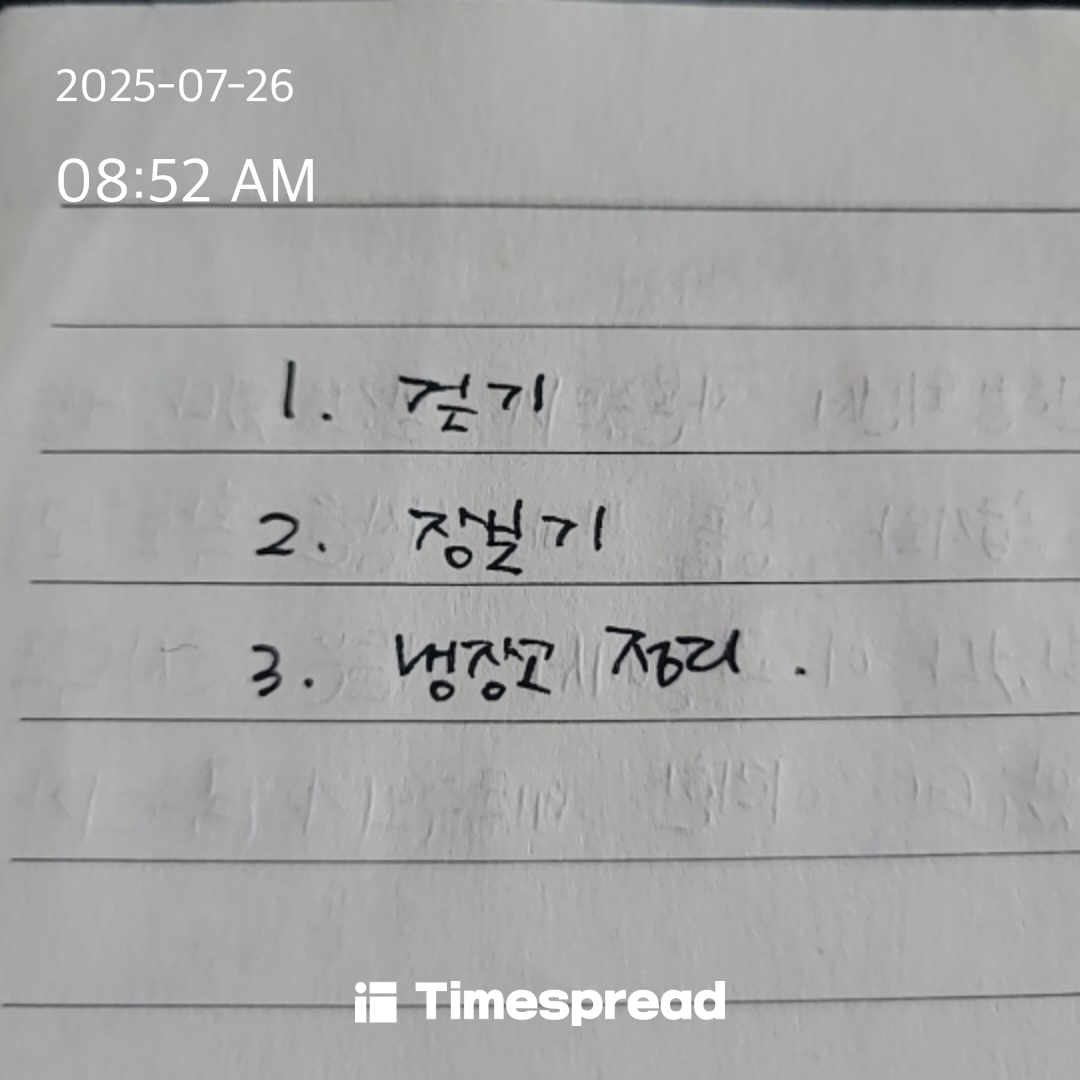 2025-07-26
08:52 AM
1. 걷기
2. 장보기
3. 냉장고 정리.
Timespread